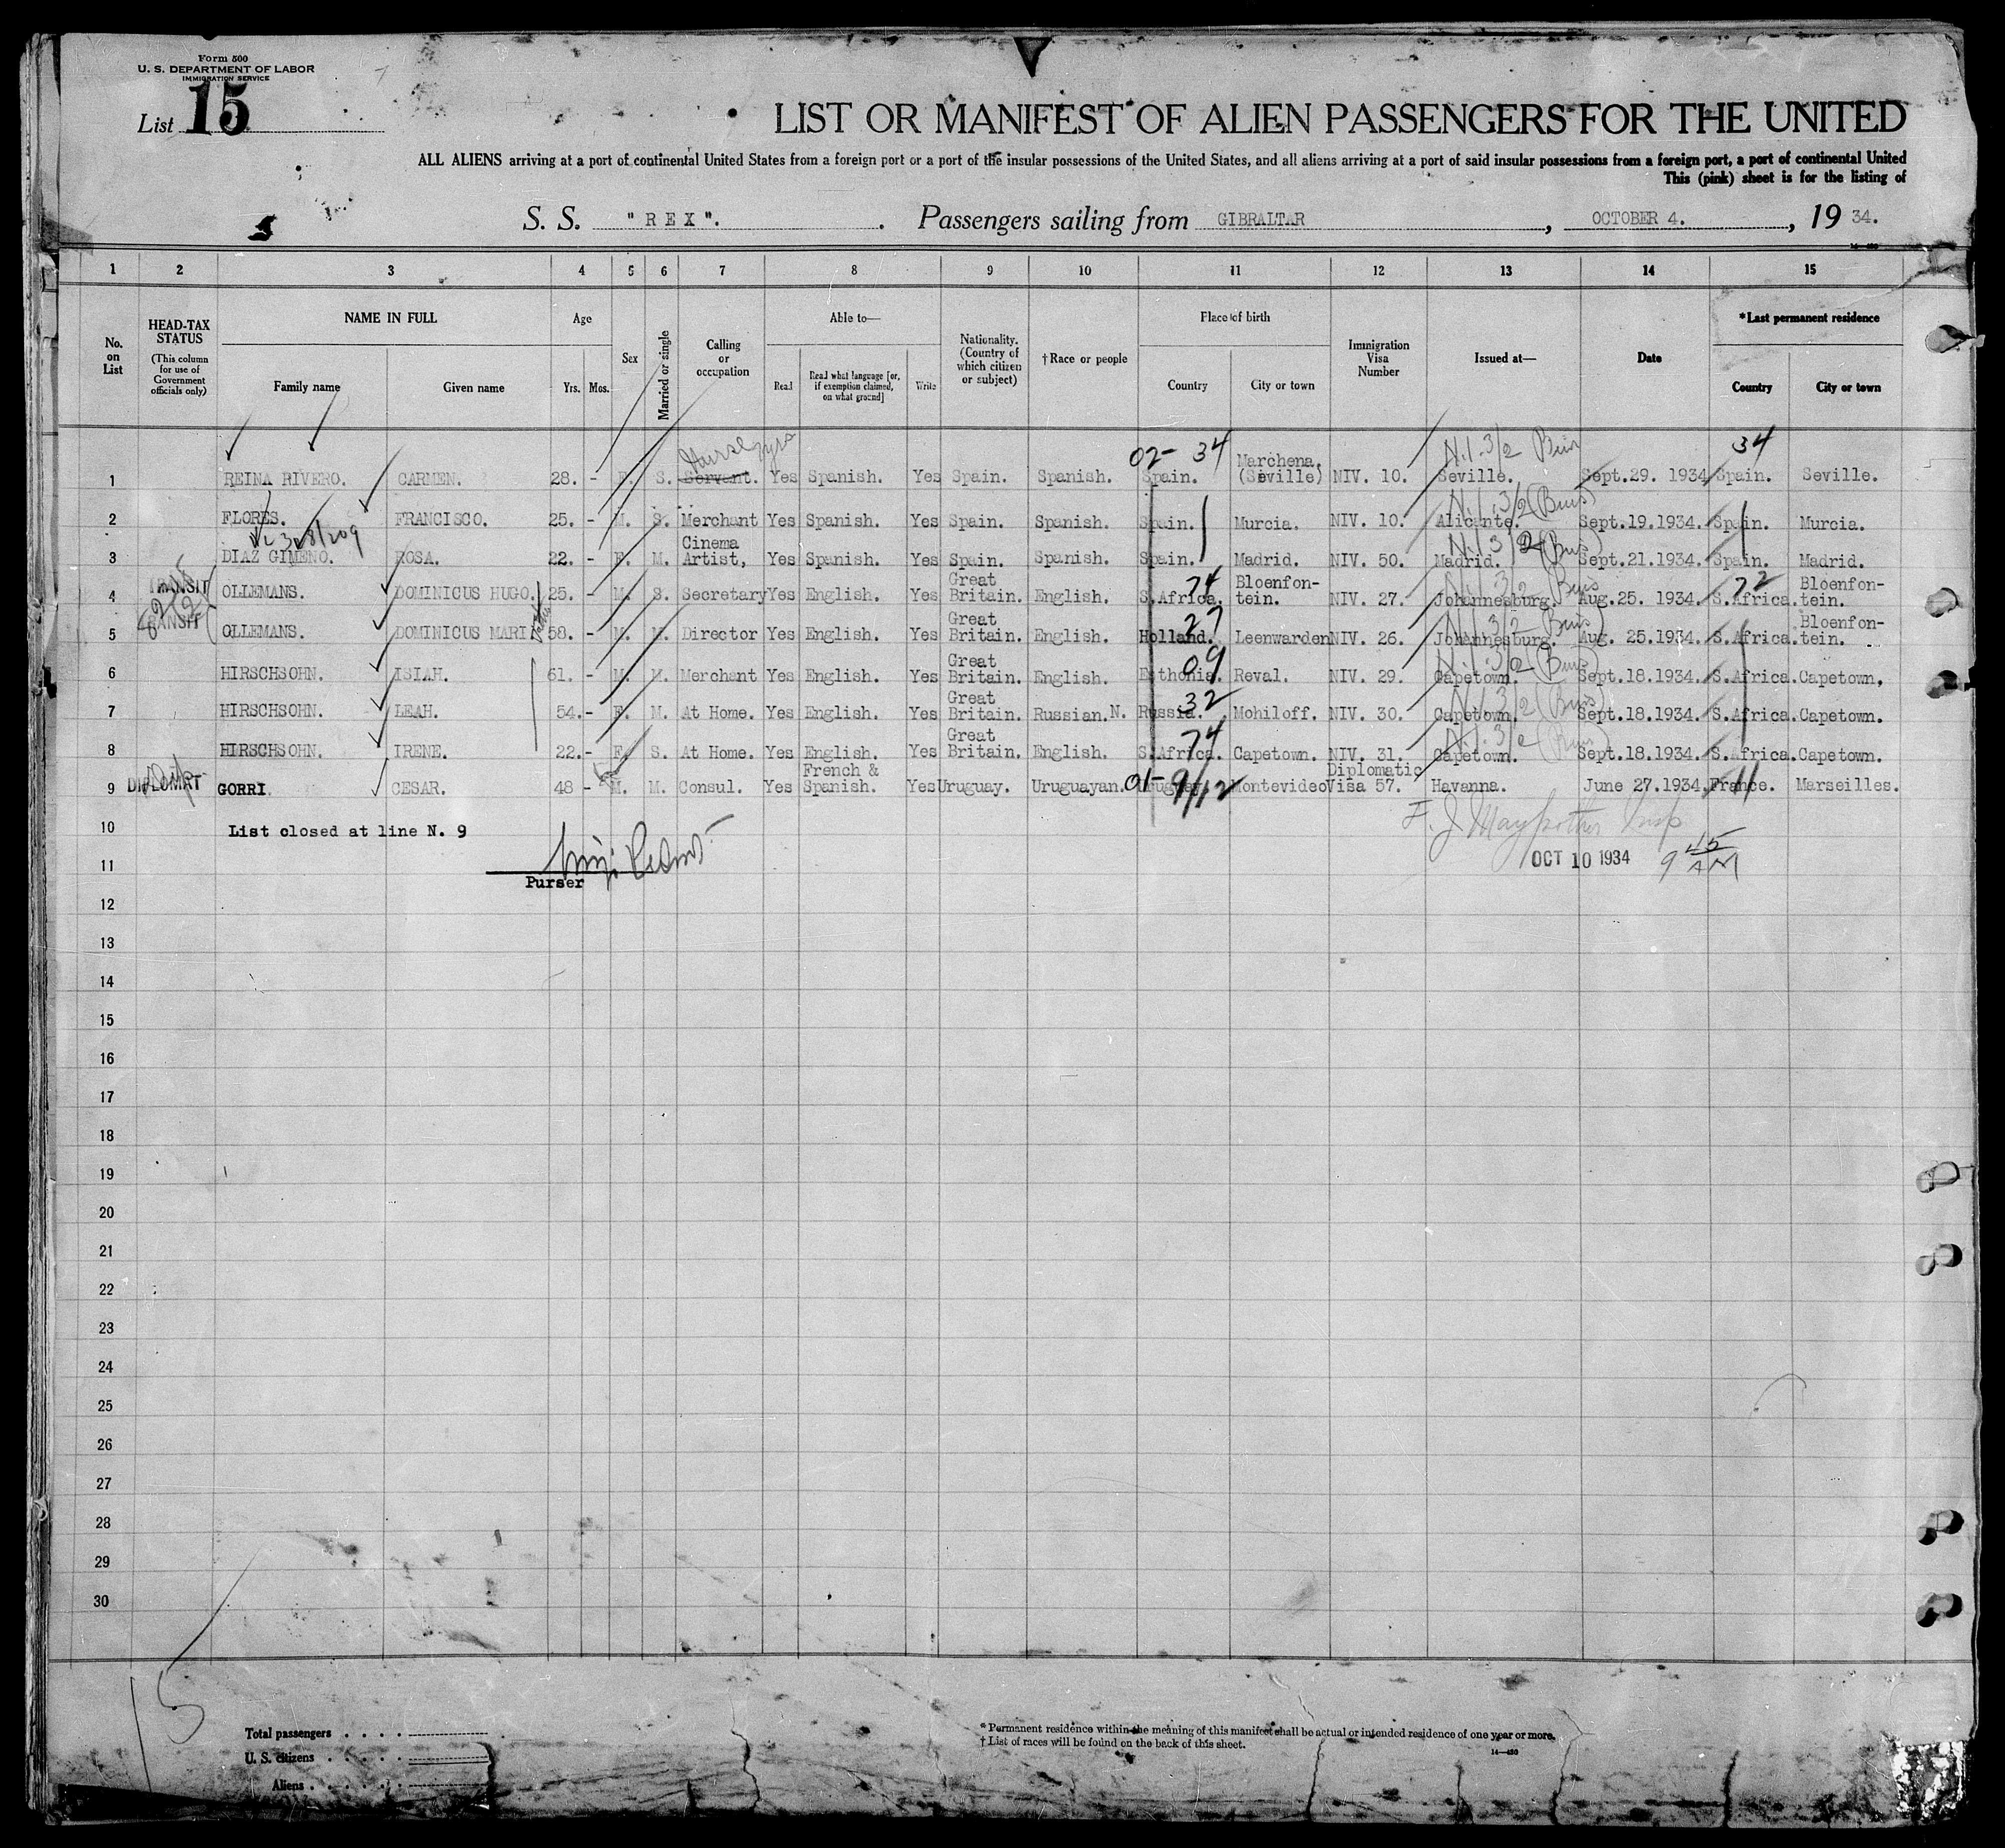 Form 500
U. S. DEPARTMENT OF LABOR
IMMIGRATION SERVICE
List 15
LIST OR MANIFEST OF ALIEN PASSENGERS FOR THE UNITED
ALL ALIENS arriving at a port of continental United States from a foreign port or a port of the insular possessions of the United States, and all aliens arriving at a port of said insular possessions from a foreign port, a port of continental United
This (pink) sheet is for the listing of
S. S. "REX". Passengers sailing from GIBRALTAR, OCTOBER 4., 19 34.
1 2 3 4 5 6 7 8 9 10 11 12 13 14 15
No. on List
HEAD-TAX STATUS (This column for use of Government officials only)
NAME IN FULL Family name Given name
Age Yrs. Mos.
Sex
Married or single
Calling or occupation
Able to— Read Read what language [or, if exemption claimed, on what ground] Write
Nationality. (Country of which citizen or subject)
† Race or people
Place of birth Country City or town
Immigration Visa Number
Issued at—
Date
*Last permanent residence Country City or town
02- 34 N.I. 3/2 34
1 REINA RIVERO. CARMEN. 28. - F. S. Servant. Yes Spanish. Yes Spain. Spanish. Spain. Marchena, (Seville) NIV. 10. Seville. Sept.29. 1934 Spain. Seville.
2 FLORES. FRANCISCO. 25. - M. S. Merchant Yes Spanish. Yes Spain. Spanish. Spain. Murcia. NIV. 10. Alicante. Sept.19.1934. Spain. Murcia.
3 DIAZ GIMENO. ROSA. 22. - F. M. Cinema Artist, Yes Spanish. Yes Spain. Spanish. Spain. Madrid. NIV. 50. Madrid. Sept.21.1934. Spain. Madrid.
4 TRANSIT OLLEMANS. DOMINICUS HUGO. 25. - M. S. Secretary Yes English. Yes Great Britain. English. S.Africa. 74 Bloenfon-tein. NIV. 27. Johannesburg. Aug.25. 1934. S.Africa. 72 Bloenfon-tein.
5 TRANSIT OLLEMANS. DOMINICUS MARI 58. - M. M. Director Yes English. Yes Great Britain. English. Holland. 27 Leenwarden NIV. 26. Johannesburg. Aug. 25.1934. S.Africa. Bloenfon-tein.
6 HIRSCHSOHN. ISIAH. 61. - M. M. Merchant Yes English. Yes Great Britain. English. Esthonia. 09 Reval. NIV. 29. Capetown. Sept.18.1934. S.Africa. Capetown,
7 HIRSCHSOHN. LEAH. 54.- F. M. At Home. Yes English. Yes Great Britain. Russian.N. Russia. 32 Mohiloff. NIV. 30. Capetown. Sept.18.1934. S.Africa. Capetown.
8 HIRSCHSOHN. IRENE. 22.- F. S. At Home. Yes English. Yes Great Britain. English. S.Africa. 74 Capetown. NIV. 31. Capetown. Sept.18.1934. S.Africa. Capetown.
9 DIPLOMAT GORRI. CESAR. 48 - M. M. Consul. Yes French & Spanish. Yes Uruguay. Uruguayan. Uruguay. Montevideo Diplomatic Visa 57. Havanna. June 27.1934. France. Marseilles.
10 List closed at line N. 9
11 OCT 10 1934 9 45 AM
Purser
12
13
14
15
16
17
18
19
20
21
22
23
24
25
26
27
28
29
30
15
Total passengers
U. S. citizens
Aliens
* Permanent residence within the meaning of this manifest shall be actual or intended residence of one year or more.
† List of races will be found on the back of this sheet.
14—480